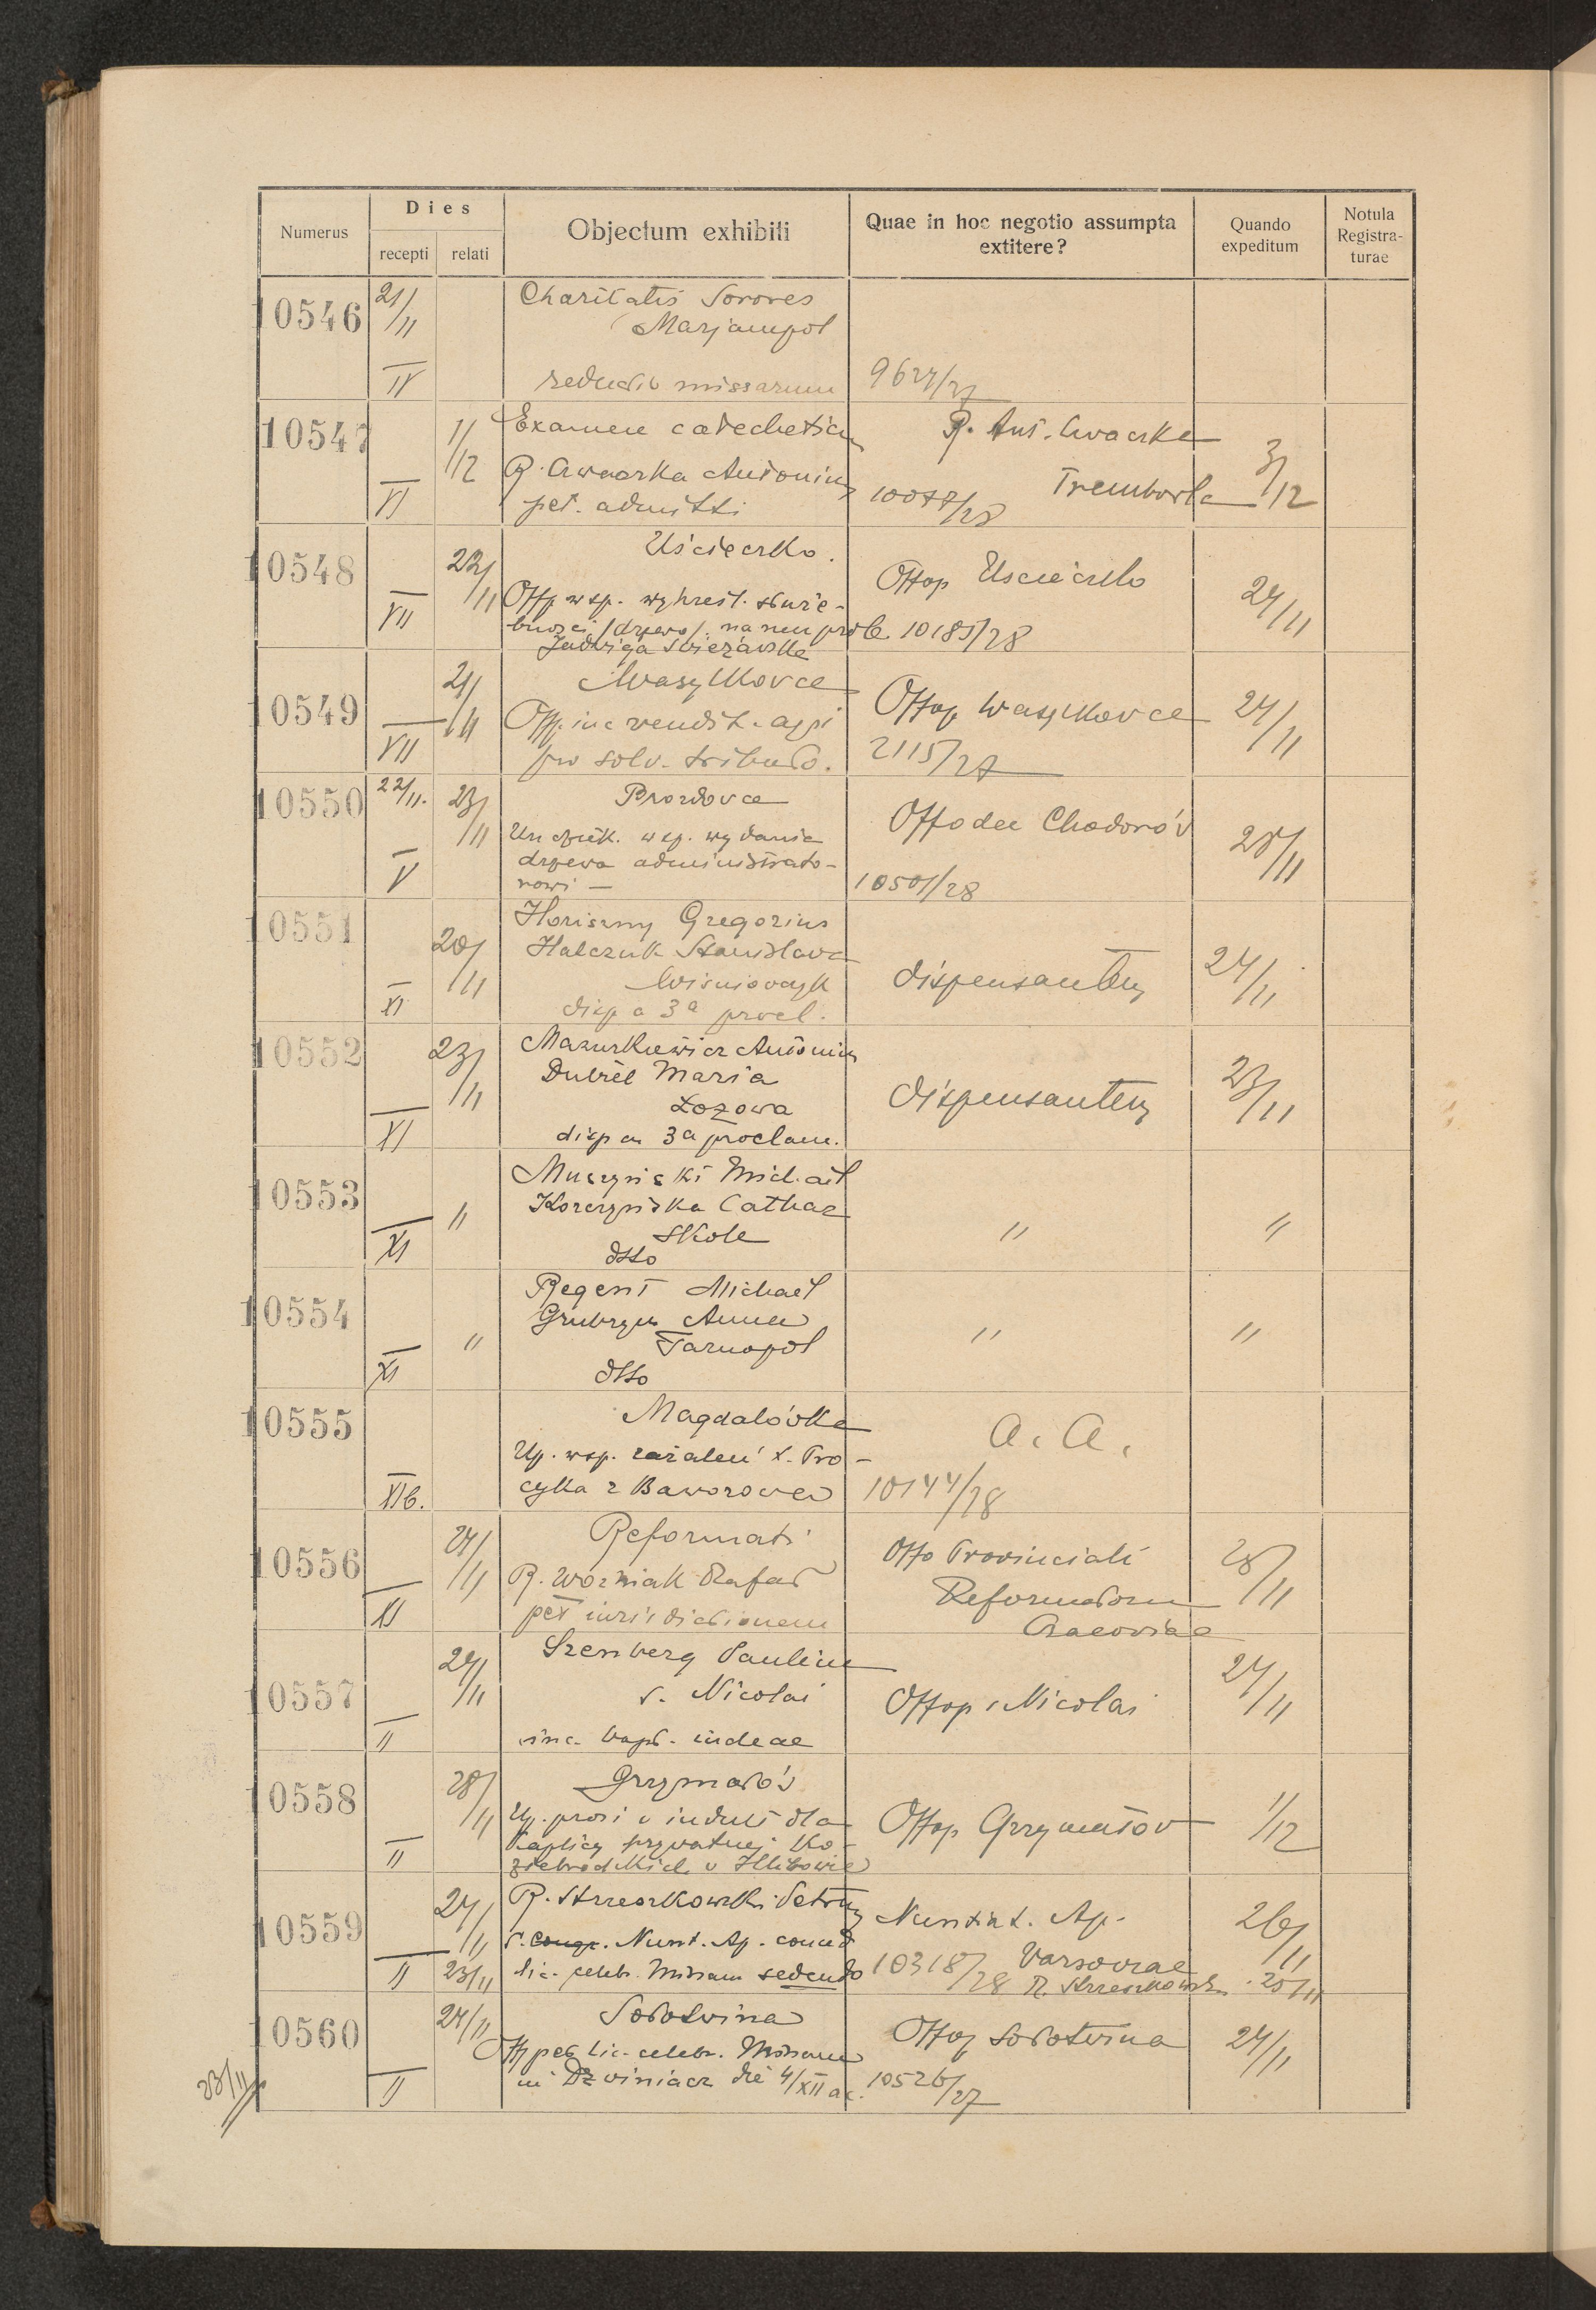 Numerus
Dies
recepti
relati
Objectum exhibiti
Quae in hoc negotio assumpta
extitere?
Quando
expeditum
Notula
Registra-
turae
10546
21/11
IV
Charitatis Sorores
Marjampol
missarum
9627/27
10547
1/12
VI
Examen catechetic
R. Antonius
pet. admitti
R. Ant.
Trembowla
3/12
10548
22/11
VII
Uścieczko
Offp wsp. wykreśl. służe-
bności /drzewo/.
Jadwiga
Offop Uscieczko
10185/28
24/11
10549
21/11
VII
Wasylkovce
Offp. inc vendit. agri
pro solv. tribut.
Offop Wasylkovce
2115/27
24/11
10550
22/11.
23/11
V
Brozdovce
wsp. wydania
drzewa administrato-
rowi —
Offo dec Chodorów
10501/28
28/11
10551
20/11
XI
Horiszny Gregorius
Halczuk Stanislava
Wiśniovczyk
disp a 3a procl.
dispensantur
24/11
10552
23/11
XI
Mazurkiewicz Antonius
Dubiel Maria
Łozowa
disp a 3a proclam.
dispensantur
23/11
10553
"
XI
Muszyński Michael
Korczyńska Cathar
Skole
dtto
"
"
10554
"
XI
Regent Michael
Anna
Tarnopol
dtto
"
"
10555
XIb.
Magdalówka
Up. wsp. zażaleń X. Pro-
cyka z Baworowa
a. a.
10144/28
10556
24/11
XI
Reformati
R. Woźniak Rafał
pet iurisdictionem
Offo Provinciali
Reformatorum
Cracoviae
28/11
10557
24/11
II
Szenberg Paulina
s. Nicolai
inc. bapt. iudeae
Offop s Nicolai
24/11
10558
28/11
II
Grzymałów
Up. prosi o indult dla
kaplicy prywatnej Ko-
ziebrodzkich w Hlibowie
Offop Grzymałow
1/12
10559
24/11
II
23/11
R. Strzeszkowski Petrus
Nunt. Ap. conced
lic. celebr. Missam sedendo
Nuntiat. Ap.
Varsoviae
10318/28
R. Strzeszkowski
26/11
10560
24/11
II
Sołotwina
Offp pet lic. celebr. Missam
in Dzwiniacz die 4/XII ac.
Offop Sołotwina
10526/27
24/11
23/11